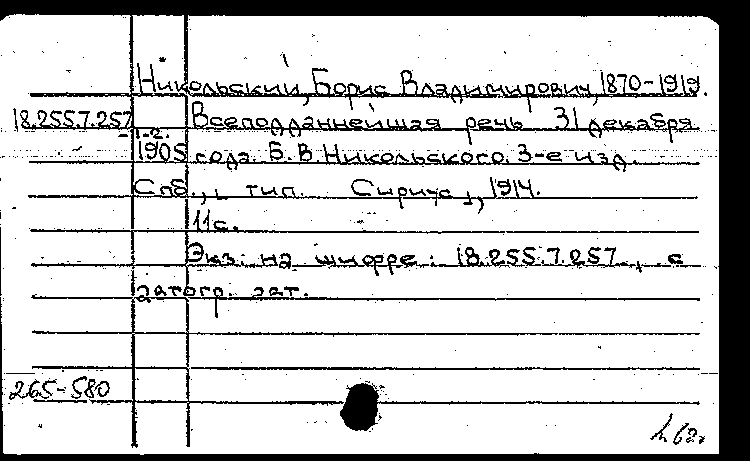 Никольский, Борис Владимирович, 1870-1919.
18.255.7.257 Всеподданнейшая речь 31 декабря
-1-2.
1905 года Б.В. Никольского. 3-е изд.
Спб., тип. Сириус, 1914.
11с.
Экз. на шифре: 18.255.7.257, с
автогр. авт.
265-580